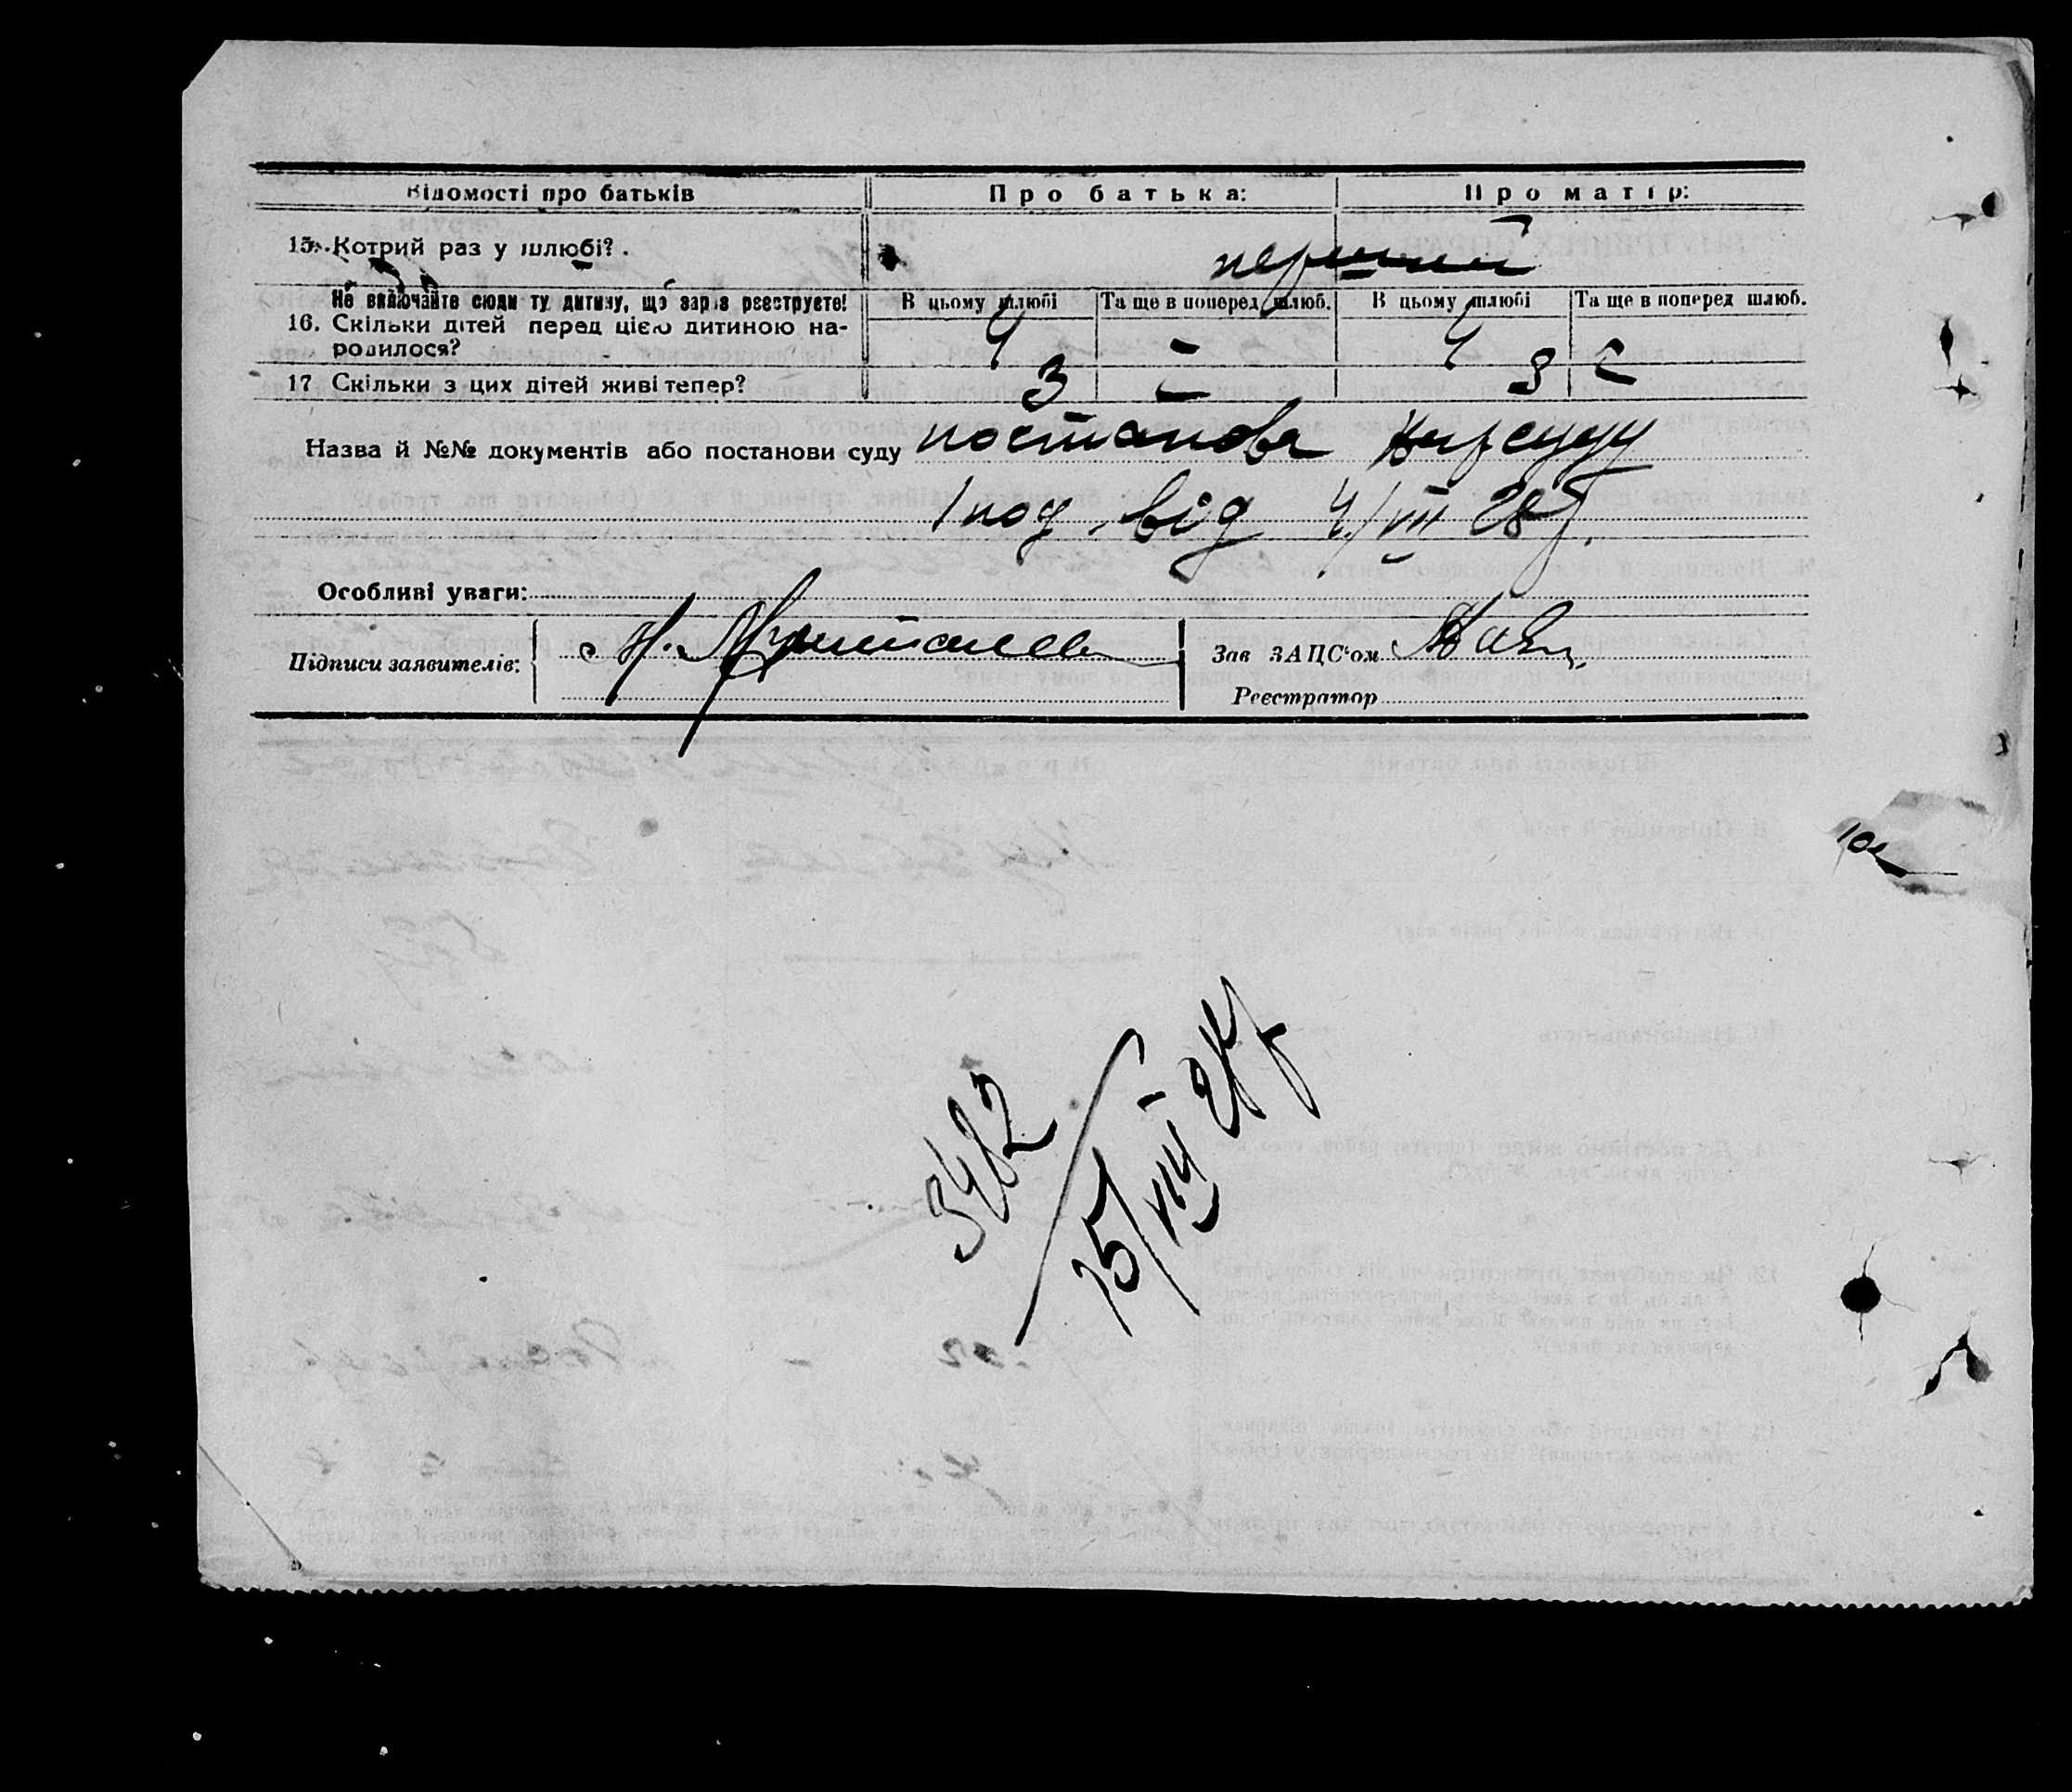 Відомості про батьків Про батька: Про матір:
15. Котрий раз у шлюбі? . перший
Не включайте сюди ту дитину, що зараз реєструєте! В цьому шлюбі Та ще в поперед. шлюб. В цьому шлюбі Та ще в поперед шлюб.
16. Скільки дітей перед цією дитиною на-
родилося? 4 — 4 —
17 Скільки з цих дітей живі тепер? 3 — 3 —
Назва й №№ документів або постанови суду постанова Нарсуду
від 4/VII 28 р.
Особливі уваги:
Підписи заявителів:
Зав ЗАЦС'ом
Реєстратор
3482
15/VIII 28 р